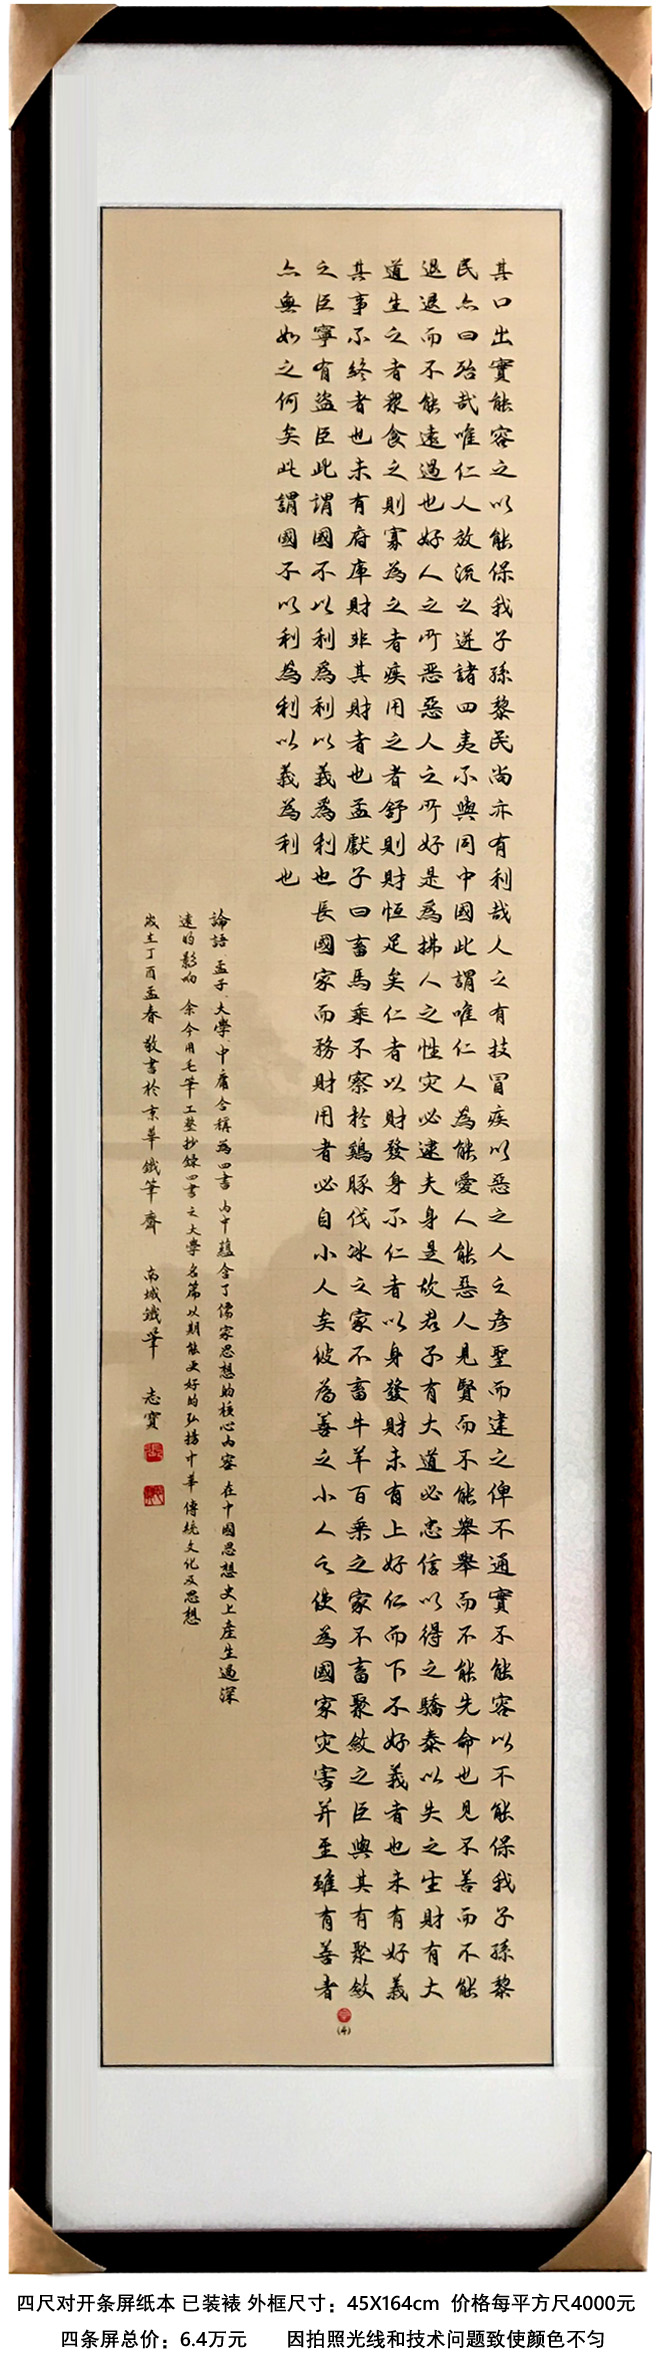 其口出實能容之以能保我子孫黎民尚亦有利哉人之有技冒疾以惡之人之彥聖而違之俾不通實不能容以不能保我子孫黎
民亦曰殆哉唯仁人放流之迸諸四夷不與同中國此謂唯仁人為能愛人能惡人見賢而不能舉舉而不能先命也見不善而不能
退退而不能遠過也好人之所惡惡人之所好是為拂人之性灾必逮夫身是故君子有大道必忠信以得之驕泰以失之生財有大
道生之者衆食之則寡為之者疾用之者舒則財恒足矣仁者以財發身不仁者以身發財未有上好仁而下不好義者也未有好義
其事不終者也未有府庫財非其財者也孟獻子曰畜馬乘不察於鷄豚伐冰之家不畜牛羊百乘之家不畜聚斂之臣與其有聚斂
之臣寧有盜臣此謂國不以利為利以義為利也長國家而務財用者必自小人矣彼為善之小人之使為國家灾害并至雖有善者
亦無如之何矣此謂國不以利為利以義為利也
論語、孟子、大學、中庸合稱為四書 內中蘊含了儒家思想的核心內容 在中國思想史上産生過深
遠的影响 余今用毛筆工整抄錄四書之大學名篇以期能更好的弘揚中華傳統文化及思想
歲在丁酉孟春 敬書於京華鐵筆齋 南城鐵筆 志寶
(4)
四尺对开条屏纸本 已装裱 外框尺寸：45X164cm 价格每平方尺4000元
四条屏总价：6.4万元 因拍照光线和技术问题致使颜色不匀